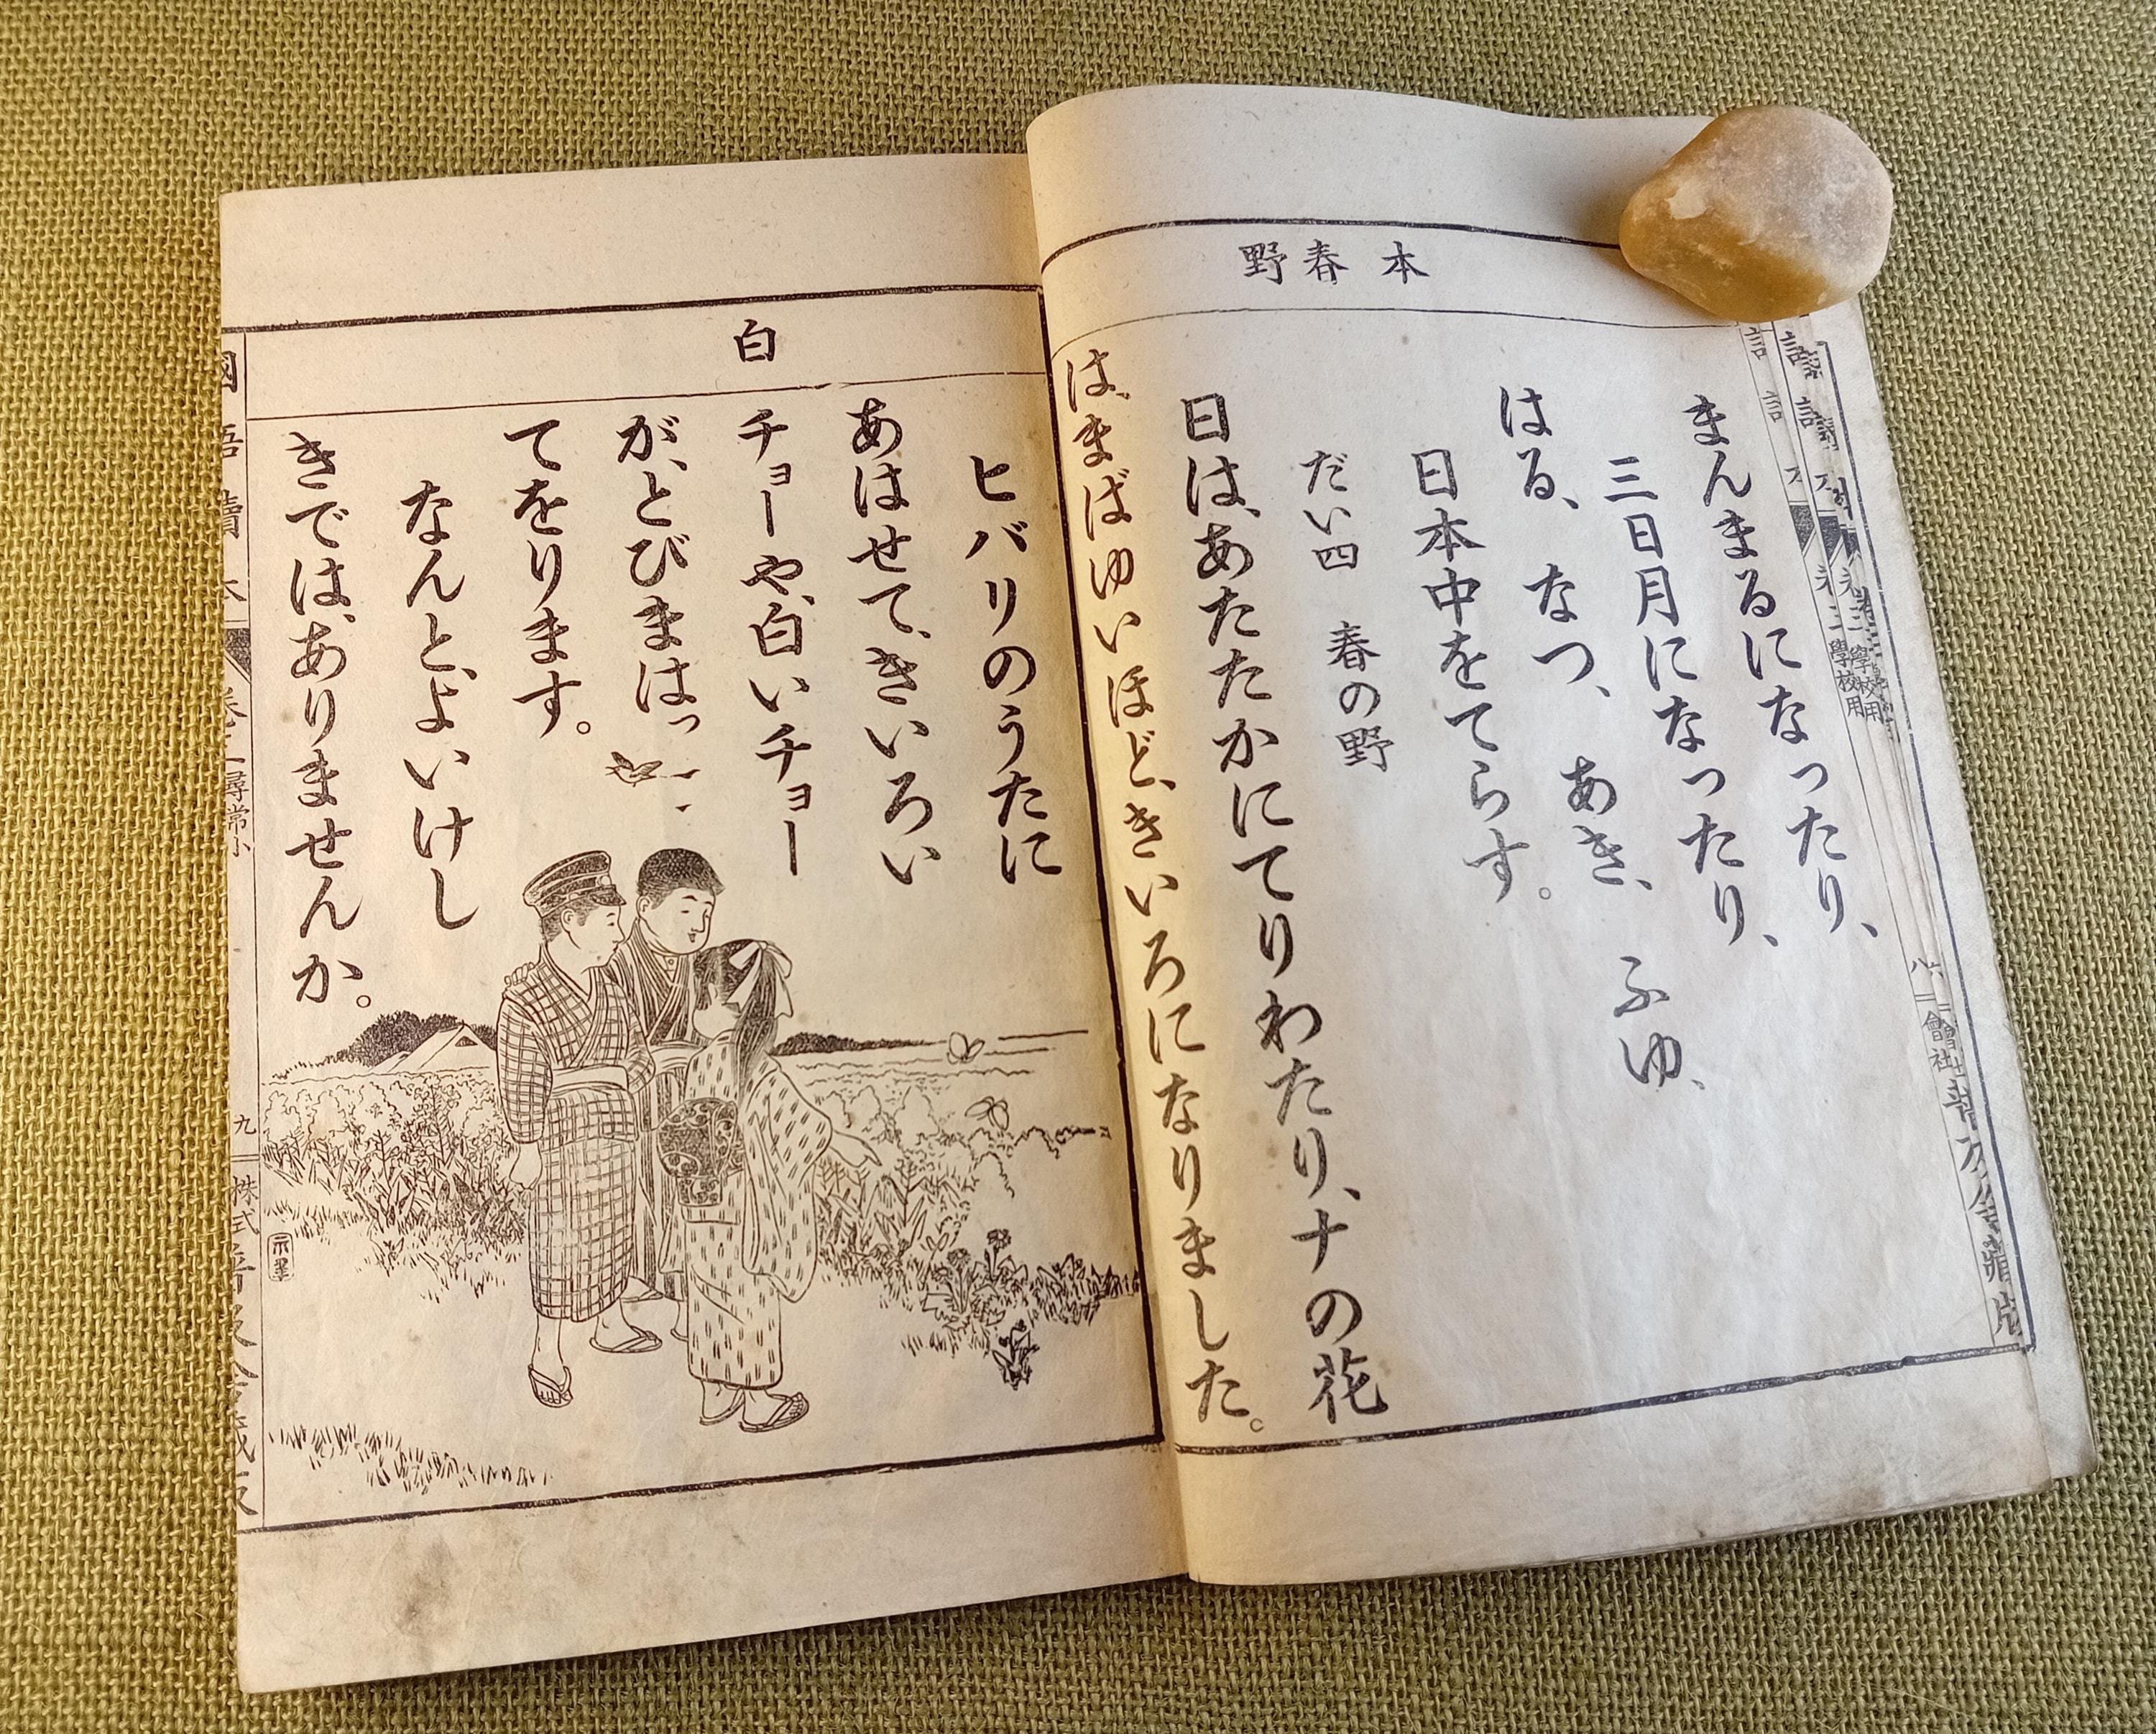 本 春 野
まんまるになったり、
三日月になったり、
はる、なつ、あき、ふゆ、
日本中をてらす。
だい四 春の野
日は、あたたかにてりわたり、ナの花
は、まばゆいほど、きいろになりました。
白
ヒバリのうたに
あはせて、きいろい
チョーや、白いチョー
が、とびまはっ
てをります。
なんと、よいけし
きでは、ありませんか。
九